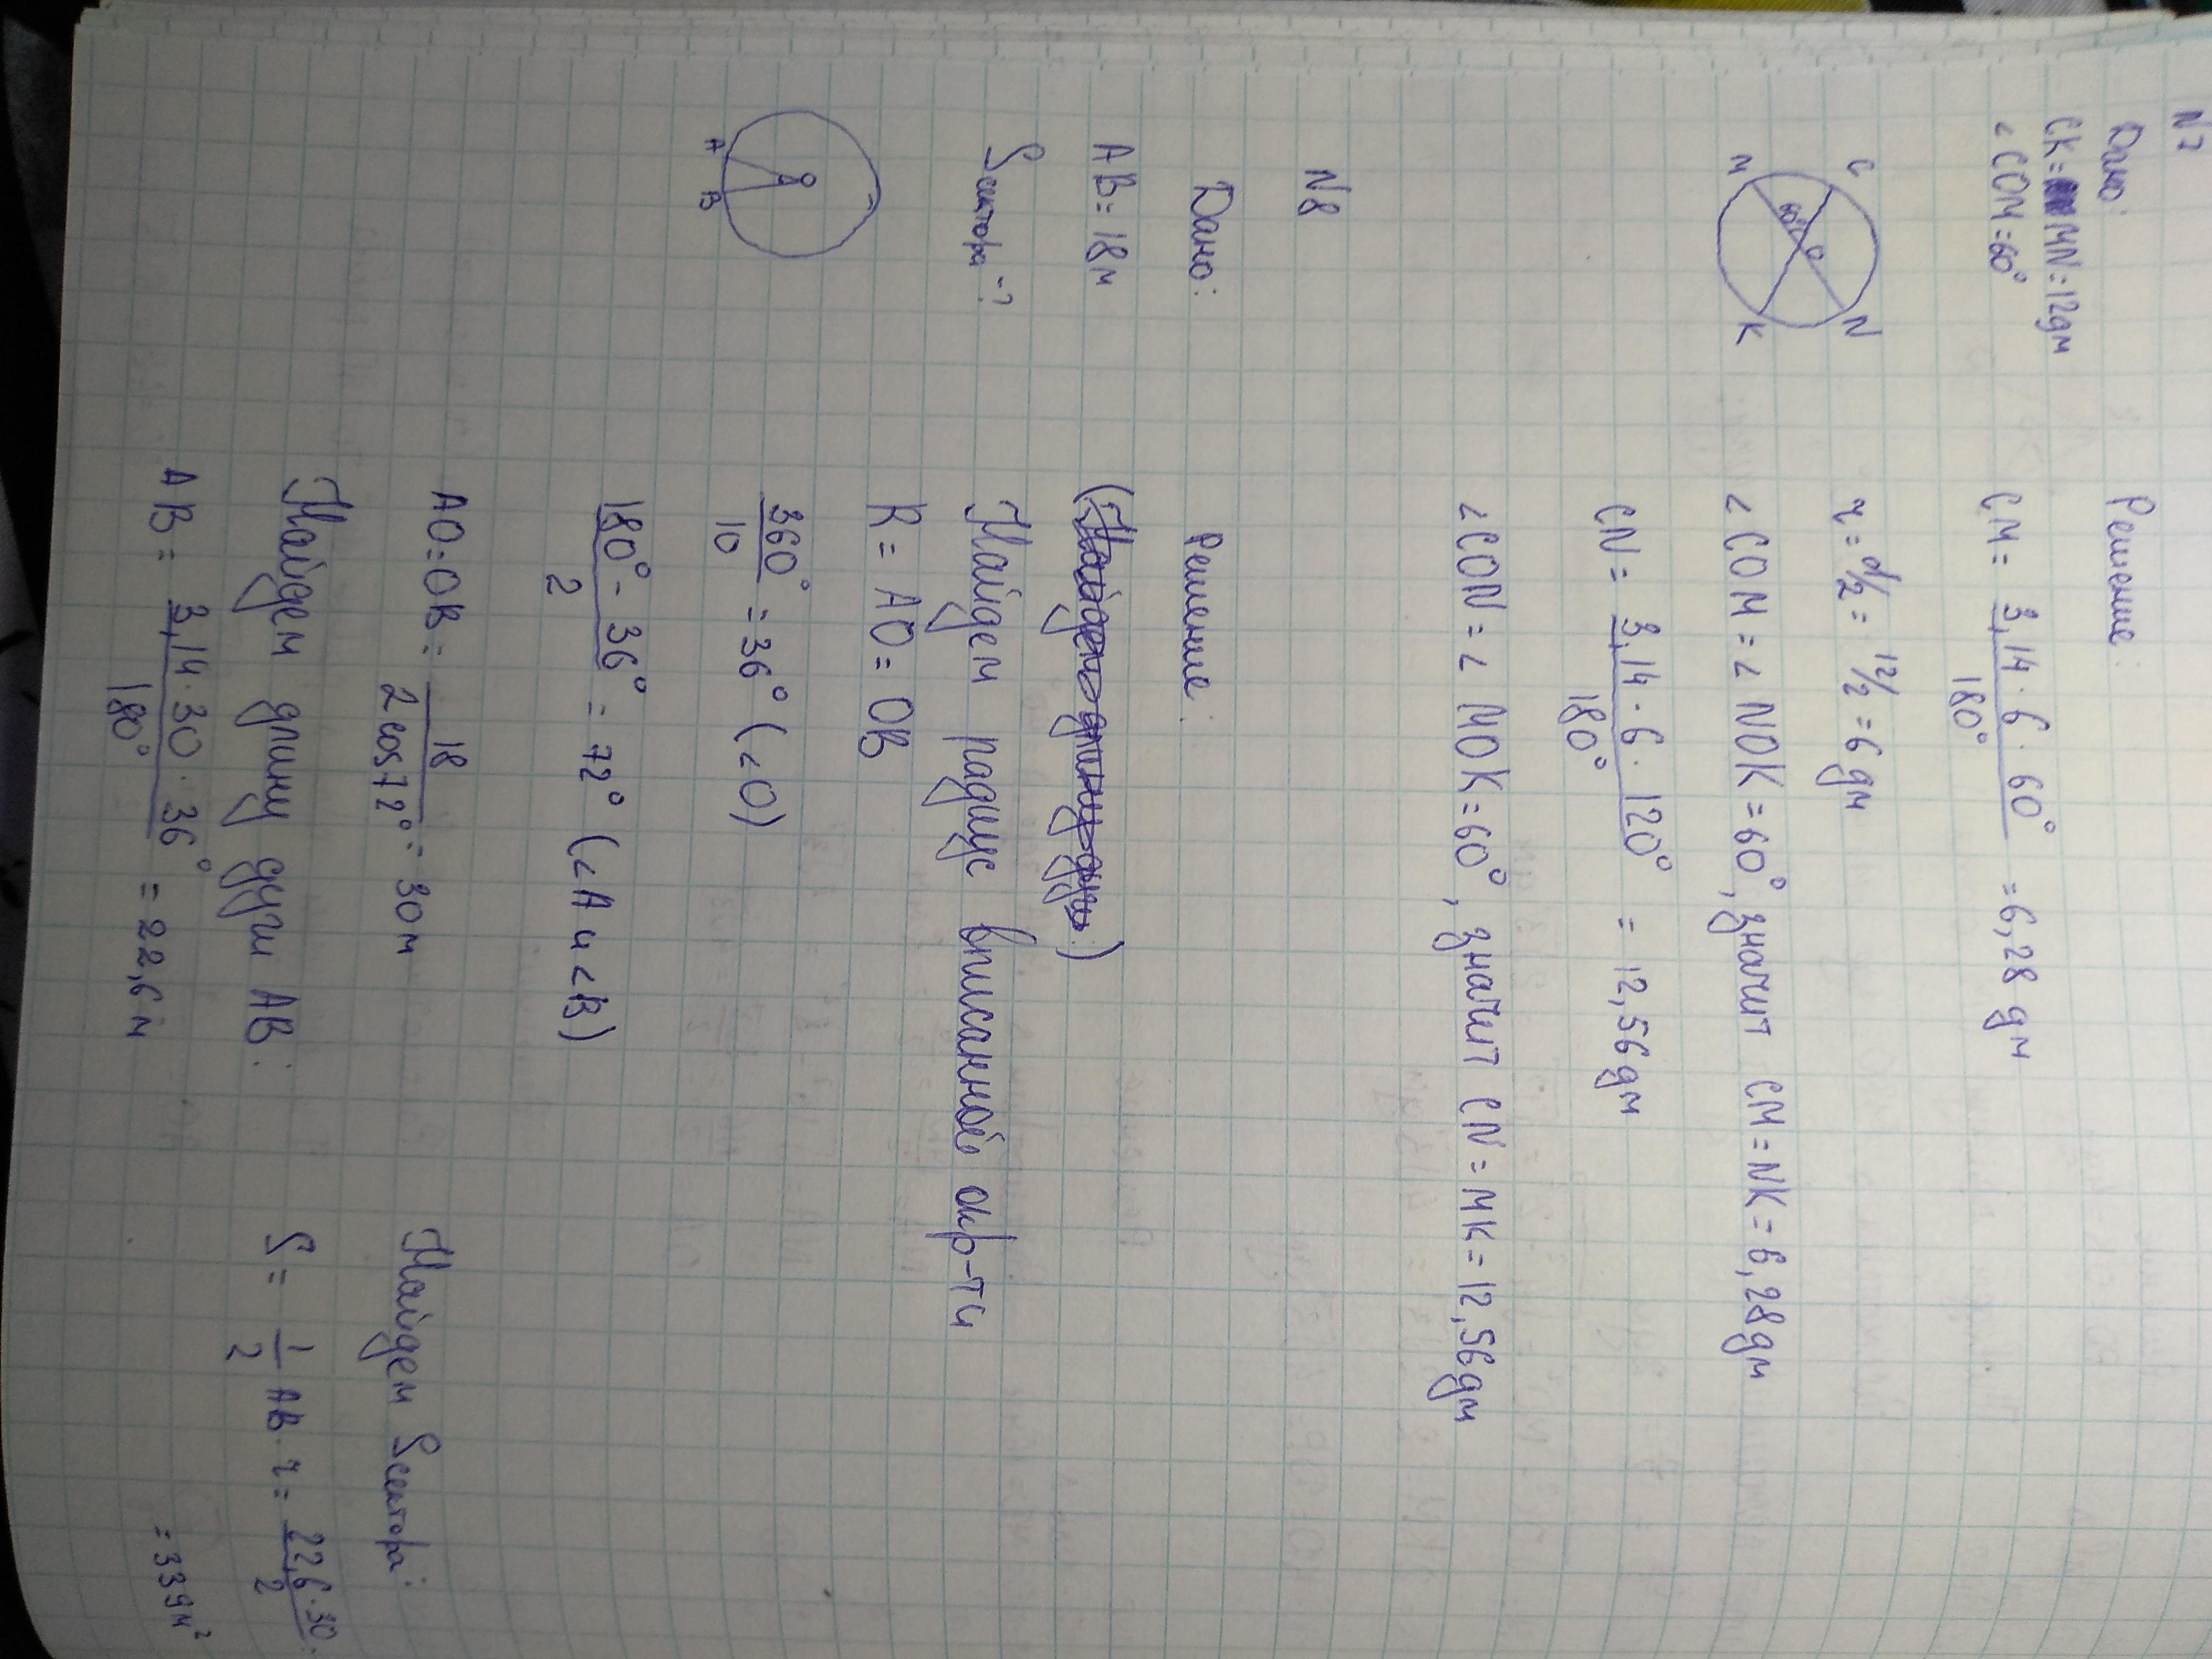 N7
Дано:
CK = MN = 12дм
∠COM = 60°
C
N
M
K
O
60°
Решение:
CM = 3,14 · 6 · 60° / 180° = 6,28 дм
r = d/2 = 12/2 = 6 дм
∠COM = ∠NOK = 60°, значит CM = NK = 6,28дм
CN = 3,14 · 6 · 120° / 180° = 12,56дм
∠CON = ∠MOK = 60°, значит CN = MK = 12,56дм
N8
Дано:
AB = 18м
Sсектора -?
O
A
B
Решение:
(Найдем длину дуги:)
Найдем радиус вписанной окр-ти
R = AO = OB
360° / 10 = 36° (∠O)
180° - 36° / 2 = 72° (∠A и ∠B)
AO = OB = 18 / 2 cos72° = 30м
Найдем длину дуги AB:
AB = 3,14 · 30 · 36° / 180° = 22,6м
Найдем Sсектора:
S = 1/2 AB · r = 22,6 · 30 / 2 =
= 339м²